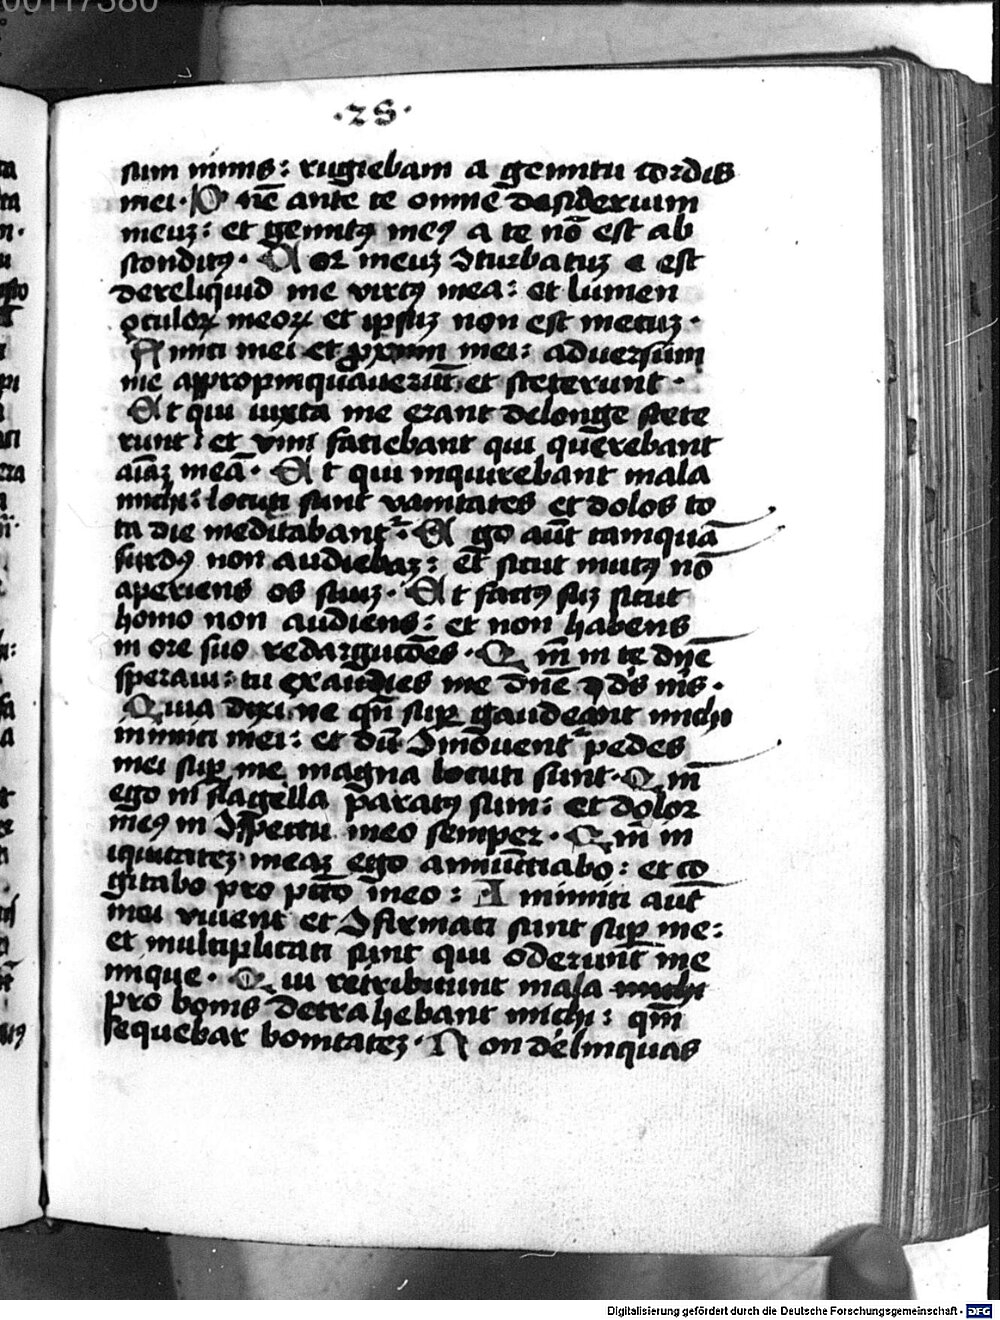 00117380
·28·
sum nimis: rugiebam a gemitu cordis
mei· D nē ante te omne desiderium
meuꝫ: et gemitꝰ meꝰ a te nō est ab
sconditꝰ· C or meuꝫ ↄturbatuꝫ e est
dereliquid me virtꝰ mea: et lumen
oculoꝝ meoꝝ et ipsuꝫ non est mecuꝫ·
A mici mei et proximi mei: aduersum
me appropinquauerūt et steterunt·
Et qui iuxta me erant de longe stete
runt: et vim faciebant qui querebant
aīaꝫ meā· Et qui inquirebant mala
michi: locuti sunt vanitates et dolos to
ta die meditabant᷑· E go aūt tamquā
surdꝰ non audiebaꝫ: et sicut mutꝰ nō
aperiens os suuꝫ· Et factꝰ suꝫ sicut
homo non audiens: et non habens
in ore suo redargucōes· Q m̄ in te dn̄e
speraui: tu exaudies me dn̄e ds ms·
Quia dixi ne qn̄ suꝑ gaudeant michi
inimici mei: et dū ↄmouent᷑ pedes
mei suꝑ me magna locuti sunt· Q m̄
ego in flagella paratꝰ sum: et dolor
meꝰ in ↄspectu meo semper· Q m̄ in
iquitateꝫ meaꝫ ego annūtiabo: et co
gitabo pro pcc̄to meo: I nimici aūt
mei viuent et ↄfirmati sunt suꝑ me:
et multiplicati sunt qui oderunt me
inique· Qui retribuunt mala michi
pro bonis detrahebant michi: qm̄
sequebar bonitateꝫ· N on delinquas
Digitalisierung gefördert durch die Deutsche Forschungsgemeinschaft - DFG